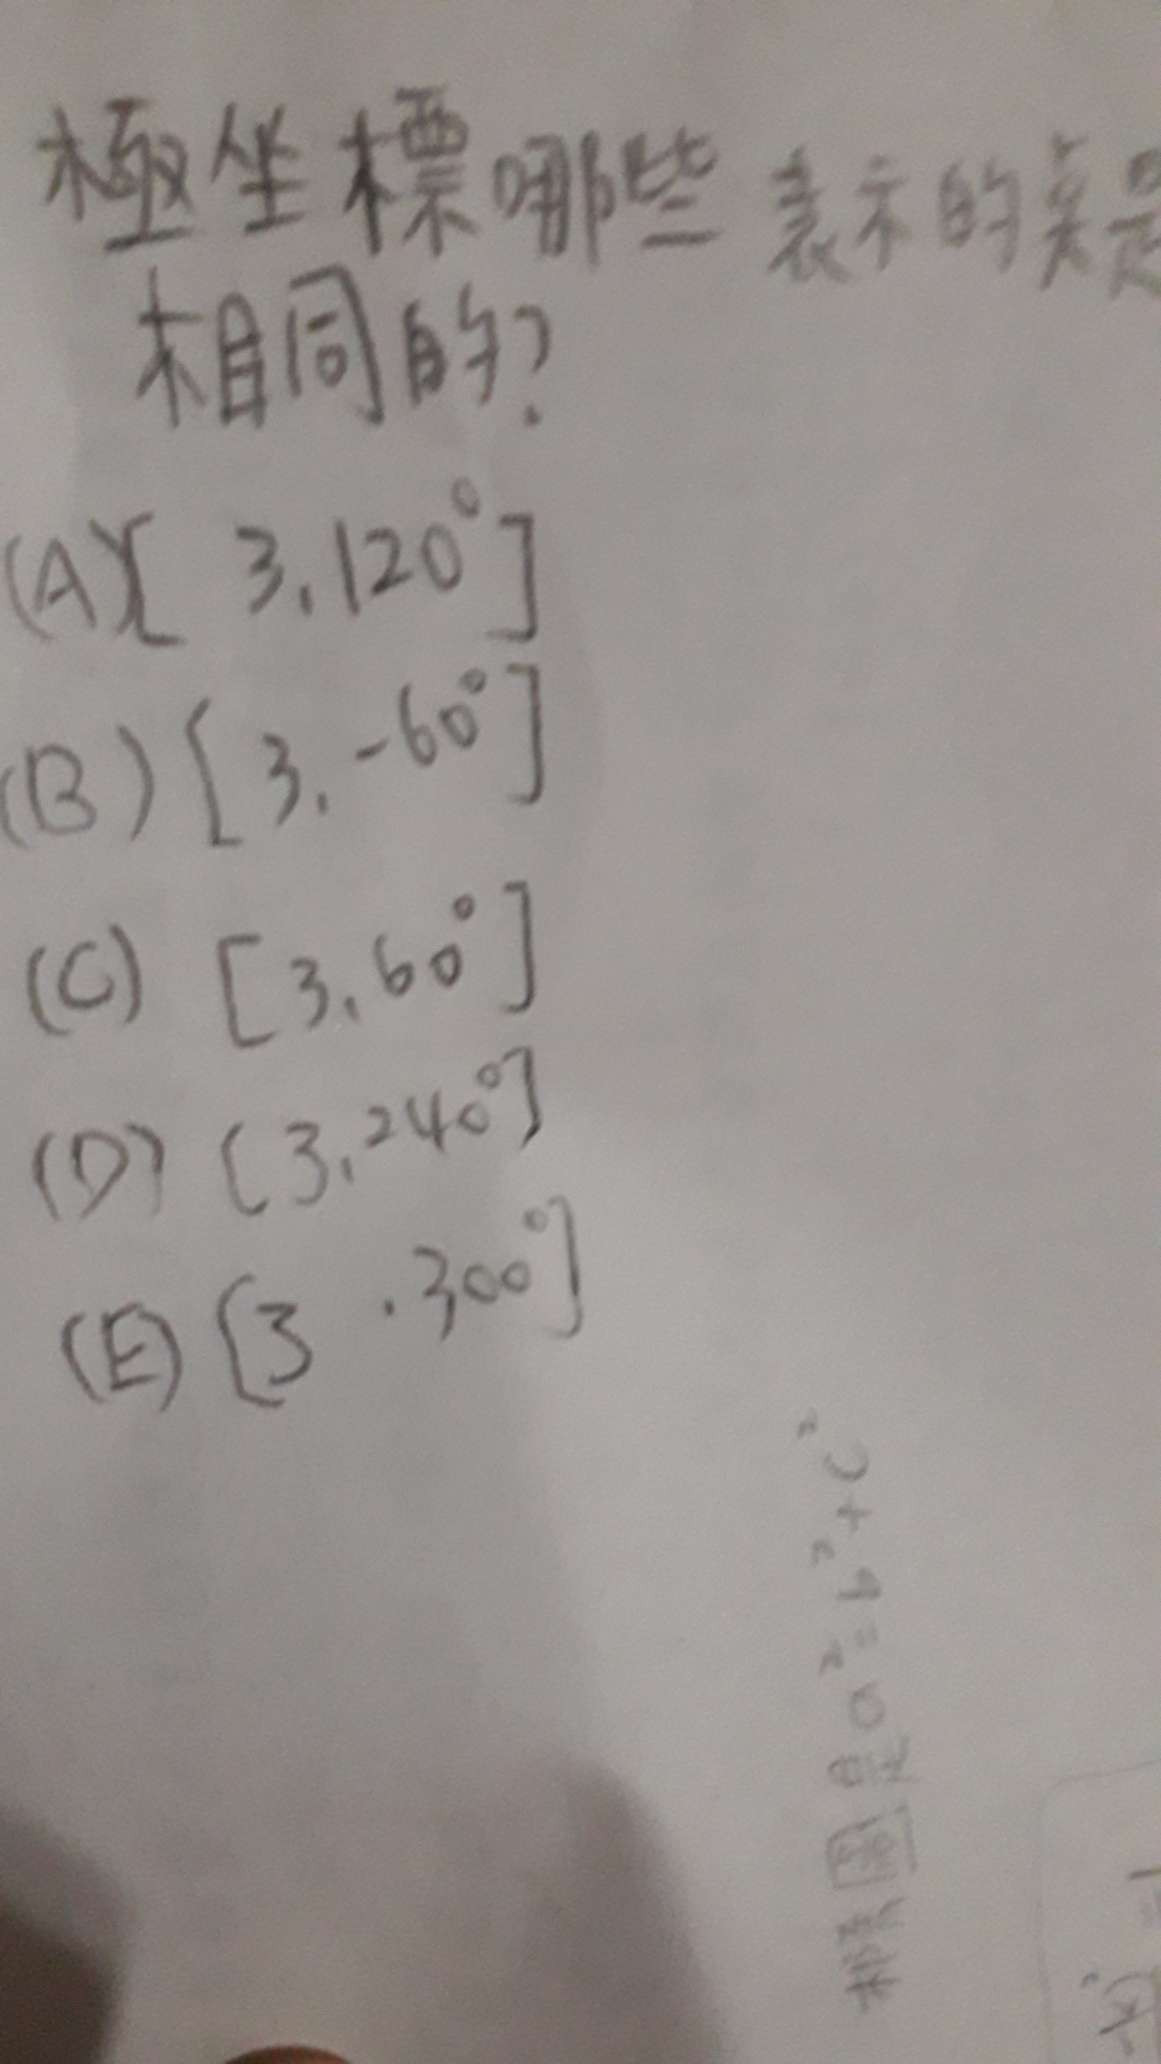 極坐標哪些表示的点是
相同的?
(A)[ 3,120°]
(B)[3,-60°]
(C) [3,60°]
(D) [3,240°]
(E) [3,300°]
橢圓是a²=b²+c²